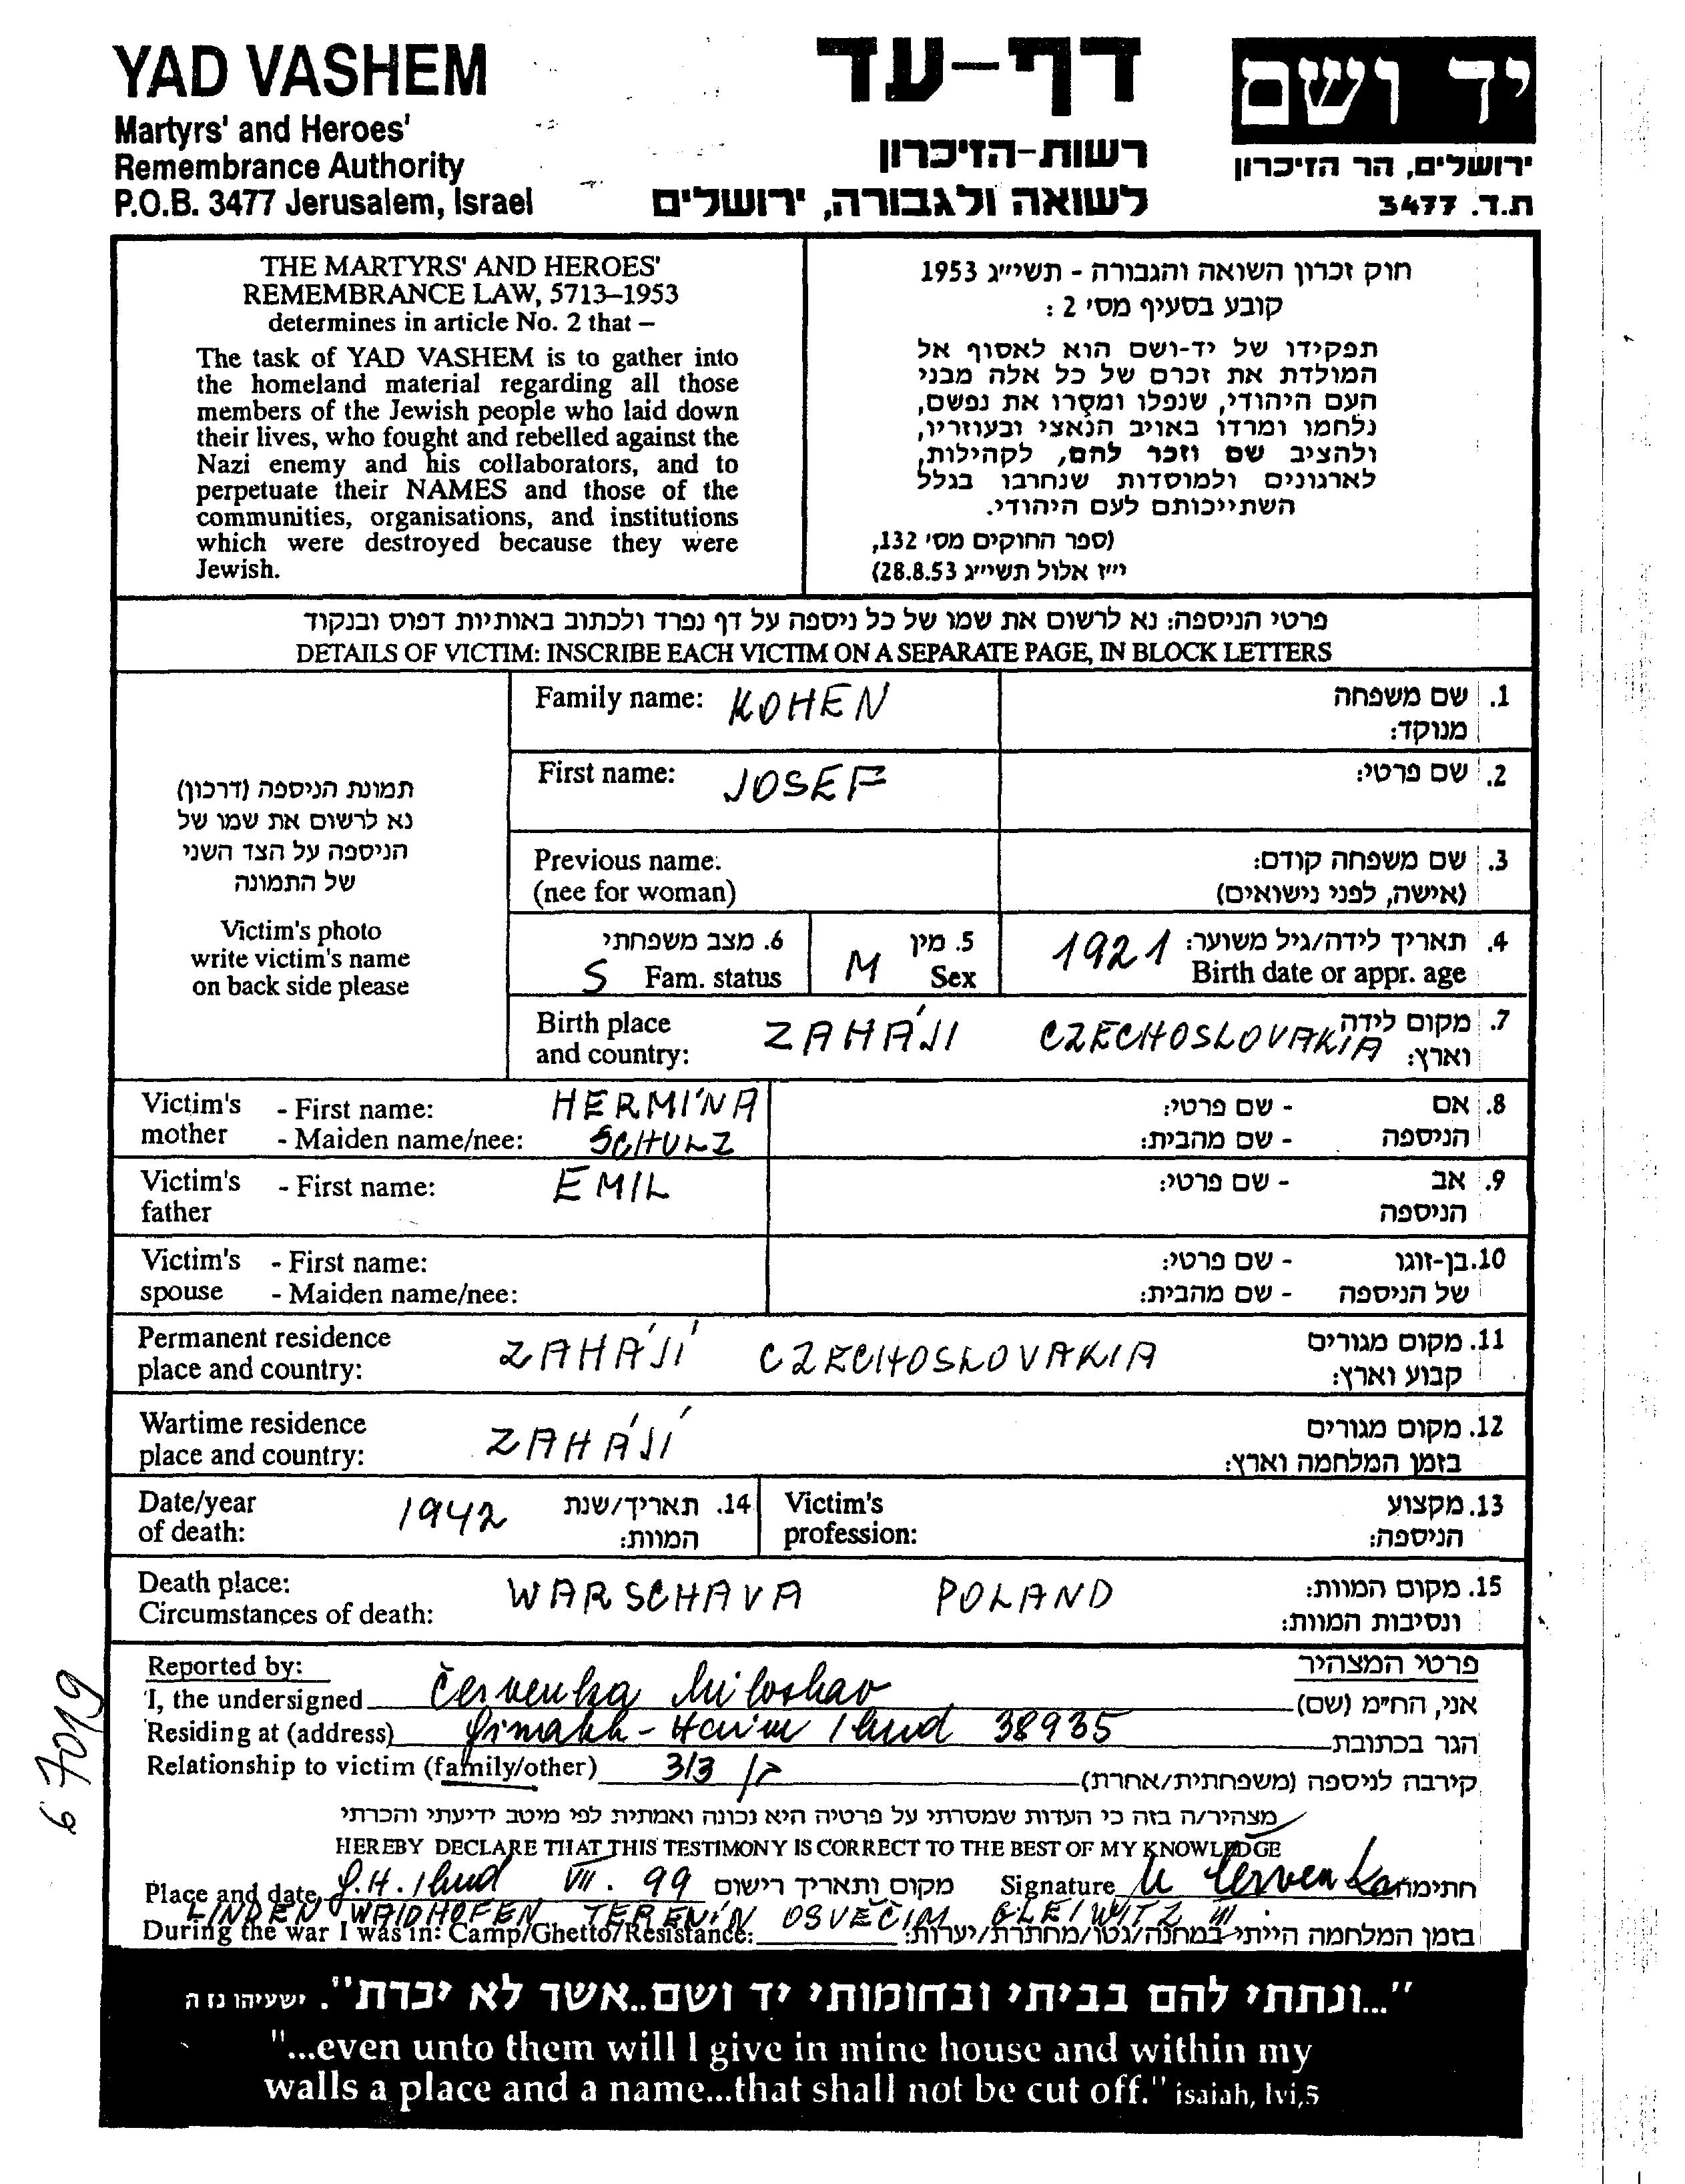 YAD VASHEM
Martyrs' and Heroes'
Remembrance Authority
P.O.B. 3477 Jerusalem, Israel
דף-עד
רשות-הזיכרון
לשואה ולגבורה, ירושלים
יד ושם
ירושלים, הר הזיכרון
ת.ד. 3477
THE MARTYRS' AND HEROES'
REMEMBRANCE LAW, 5713–1953
determines in article No. 2 that –
The task of YAD VASHEM is to gather into
the homeland material regarding all those
members of the Jewish people who laid down
their lives, who fought and rebelled against the
Nazi enemy and his collaborators, and to
perpetuate their NAMES and those of the
communities, organisations, and institutions
which were destroyed because they were
Jewish.
חוק זכרון השואה והגבורה - תשי״ג 1953
קובע בסעיף מס׳ 2 :
תפקידו של יד-ושם הוא לאסוף אל
המולדת את זכרם של כל אלה מבני
העם היהודי, שנפלו ומסרו את נפשם,
נלחמו ומרדו באויב הנאצי ובעוזריו,
ולהציב שם וזכר להם, לקהילות,
לארגונים ולמוסדות שנחרבו בגלל
השתייכותם לעם היהודי.
(ספר החוקים מס׳ 132,
י״ז אלול תשי״ג 28.8.53)
פרטי הניספה: נא לרשום את שמו של כל ניספה על דף נפרד ולכתוב באותיות דפוס ובנקוד
DETAILS OF VICTIM: INSCRIBE EACH VICTIM ON A SEPARATE PAGE, IN BLOCK LETTERS
תמונת הניספה (דרכון)
נא לרשום את שמו של
הניספה על הצד השני
של התמונה
Victim's photo
write victim's name
on back side please
Family name: KOHEN 1. שם משפחה
מנוקד:
First name: JOSEF 2. שם פרטי:
Previous name: 3. שם משפחה קודם:
(nee for woman) (אישה, לפני נישואים)
6. מצב משפחתי 5. מין 1921 4. תאריך לידה/גיל משוער:
S Fam. status M Sex Birth date or appr. age
Birth place ZAHÁJI CZECHOSLOVAKIA 7. מקום לידה
and country: וארץ:
Victim's - First name: HERMÍNA - שם פרטי: 8. אם
mother - Maiden name/nee: SCHULZ - שם מהבית: הניספה
Victim's - First name: EMIL - שם פרטי: 9. אב
father הניספה
Victim's - First name: - שם פרטי: 10.בן-זוגו
spouse - Maiden name/nee: - שם מהבית: של הניספה
Permanent residence ZAHÁJÍ CZECHOSLOVAKIA 11. מקום מגורים
place and country: קבוע וארץ:
Wartime residence ZAHÁJÍ 12. מקום מגורים
place and country: בזמן המלחמה וארץ:
Date/year 1942 14. תאריך/שנת Victim's 13.מקצוע
of death: המוות: profession: הניספה:
Death place: WARSCHAVA POLAND 15. מקום המוות:
Circumstances of death: ונסיבות המוות:
Reported by: פרטי המצהיר
I, the undersigned Červenka Miloslav אני, הח״מ (שם)
Residing at (address) 38935 הגר בכתובת
Relationship to victim (family/other) קירבה לניספה (משפחתית/אחרת)
מצהיר/ה בזה כי העדות שמסרתי על פרטיה היא נכונה ואמתית לפי מיטב ידיעתי והכרתי
HEREBY DECLARE THAT THIS TESTIMONY IS CORRECT TO THE BEST OF MY KNOWLEDGE
Place and date VII. 99 מקום ותאריך רישום Signature M Červenka חתימה
LINDEN WAIDHOFEN TEREZÍN OSVĚČIM GLEIWITZ III.
During the war I was in: Camp/Ghetto/Resistance: בזמן המלחמה הייתי במחנה/גטו/מחתרת/יערות:
6 7019
"...ונתתי להם בביתי ובחומותי יד ושם..אשר לא יכרת". ישעיהו נז ה
"...even unto them will I give in mine house and within my
walls a place and a name...that shall not be cut off." isaiah, lvi,5